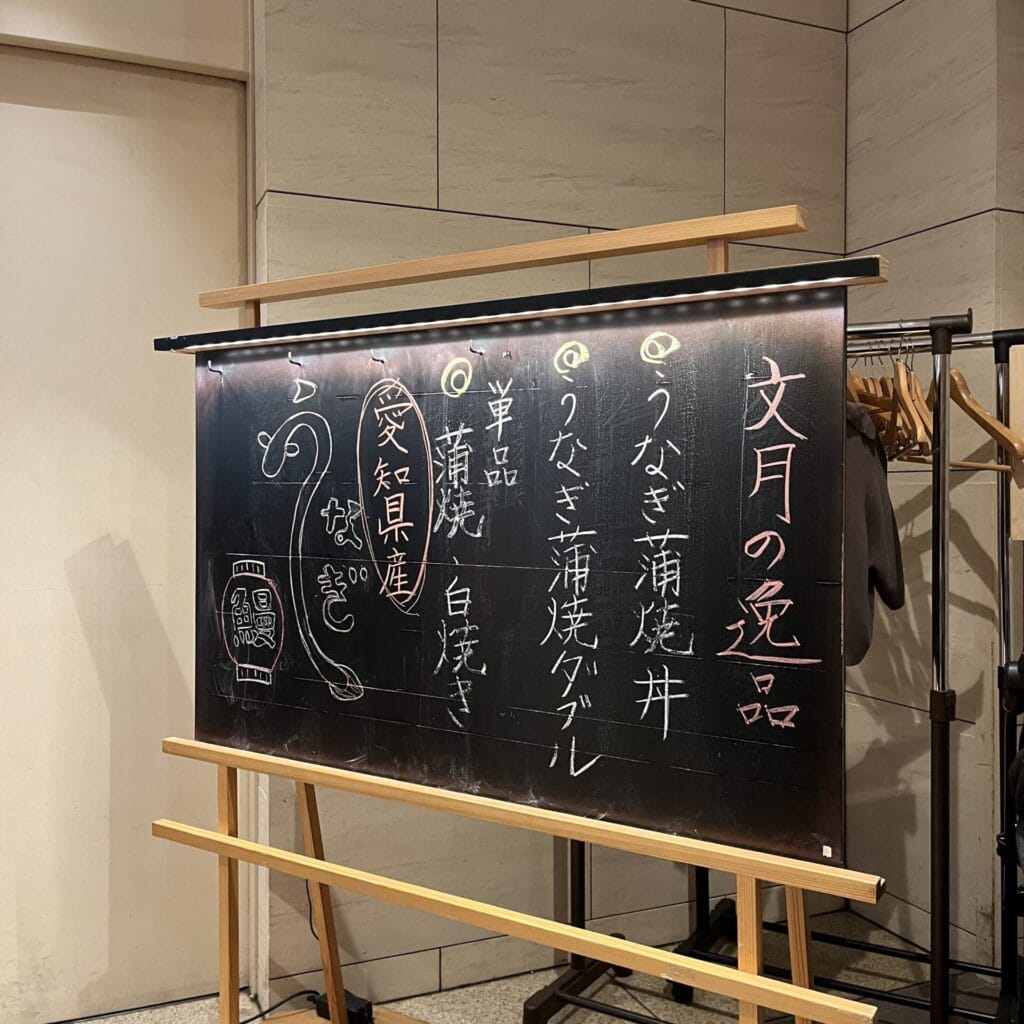 文月の逸品
◎うなぎ蒲焼丼
◎うなぎ蒲焼ダブル
単品
◎蒲焼、白焼き
愛知県産
うなぎ
鰻